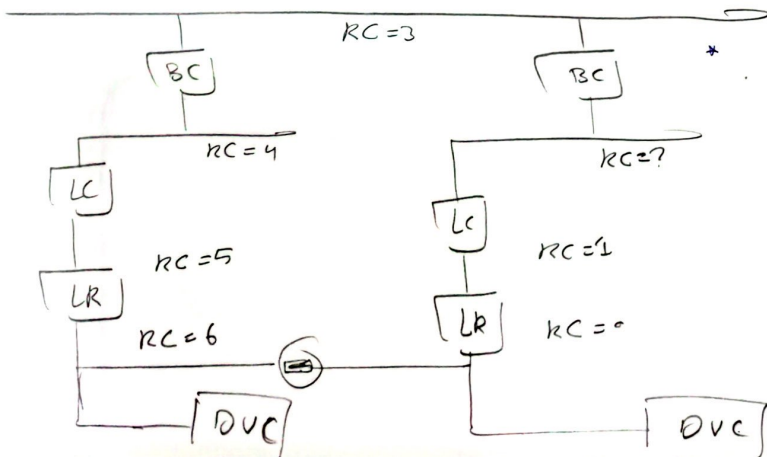 RC=3
BC
BC
RC=4
RC=?
LC
LC
RC=5
RC=1
LR
LR
RC=6
DVC
DVC